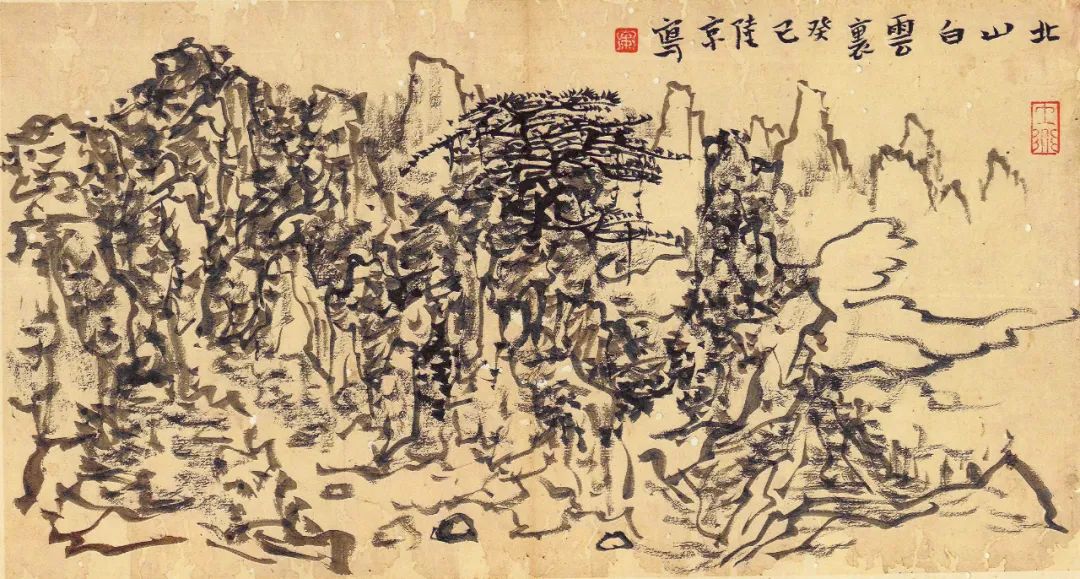 北山白雲裏癸巳陸京寫